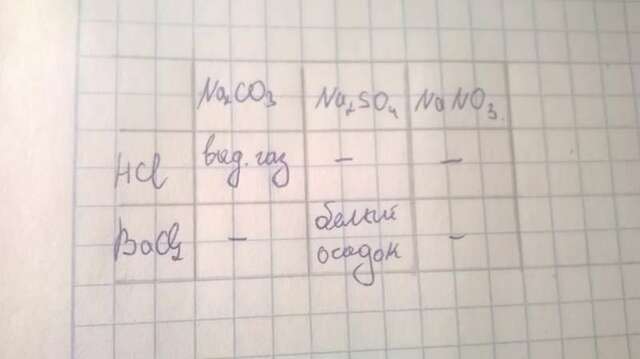 Na₂CO₃ Na₂SO₄ NaNO₃
HCl выд. газ – –
BaCl₂ – белый осадок –